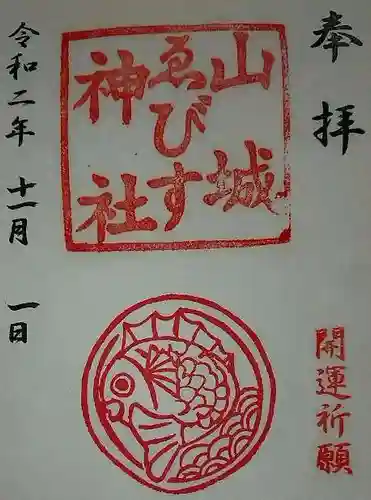 奉拝
開運祈願
山城
ゑびす
神社
令和二年十一月一日